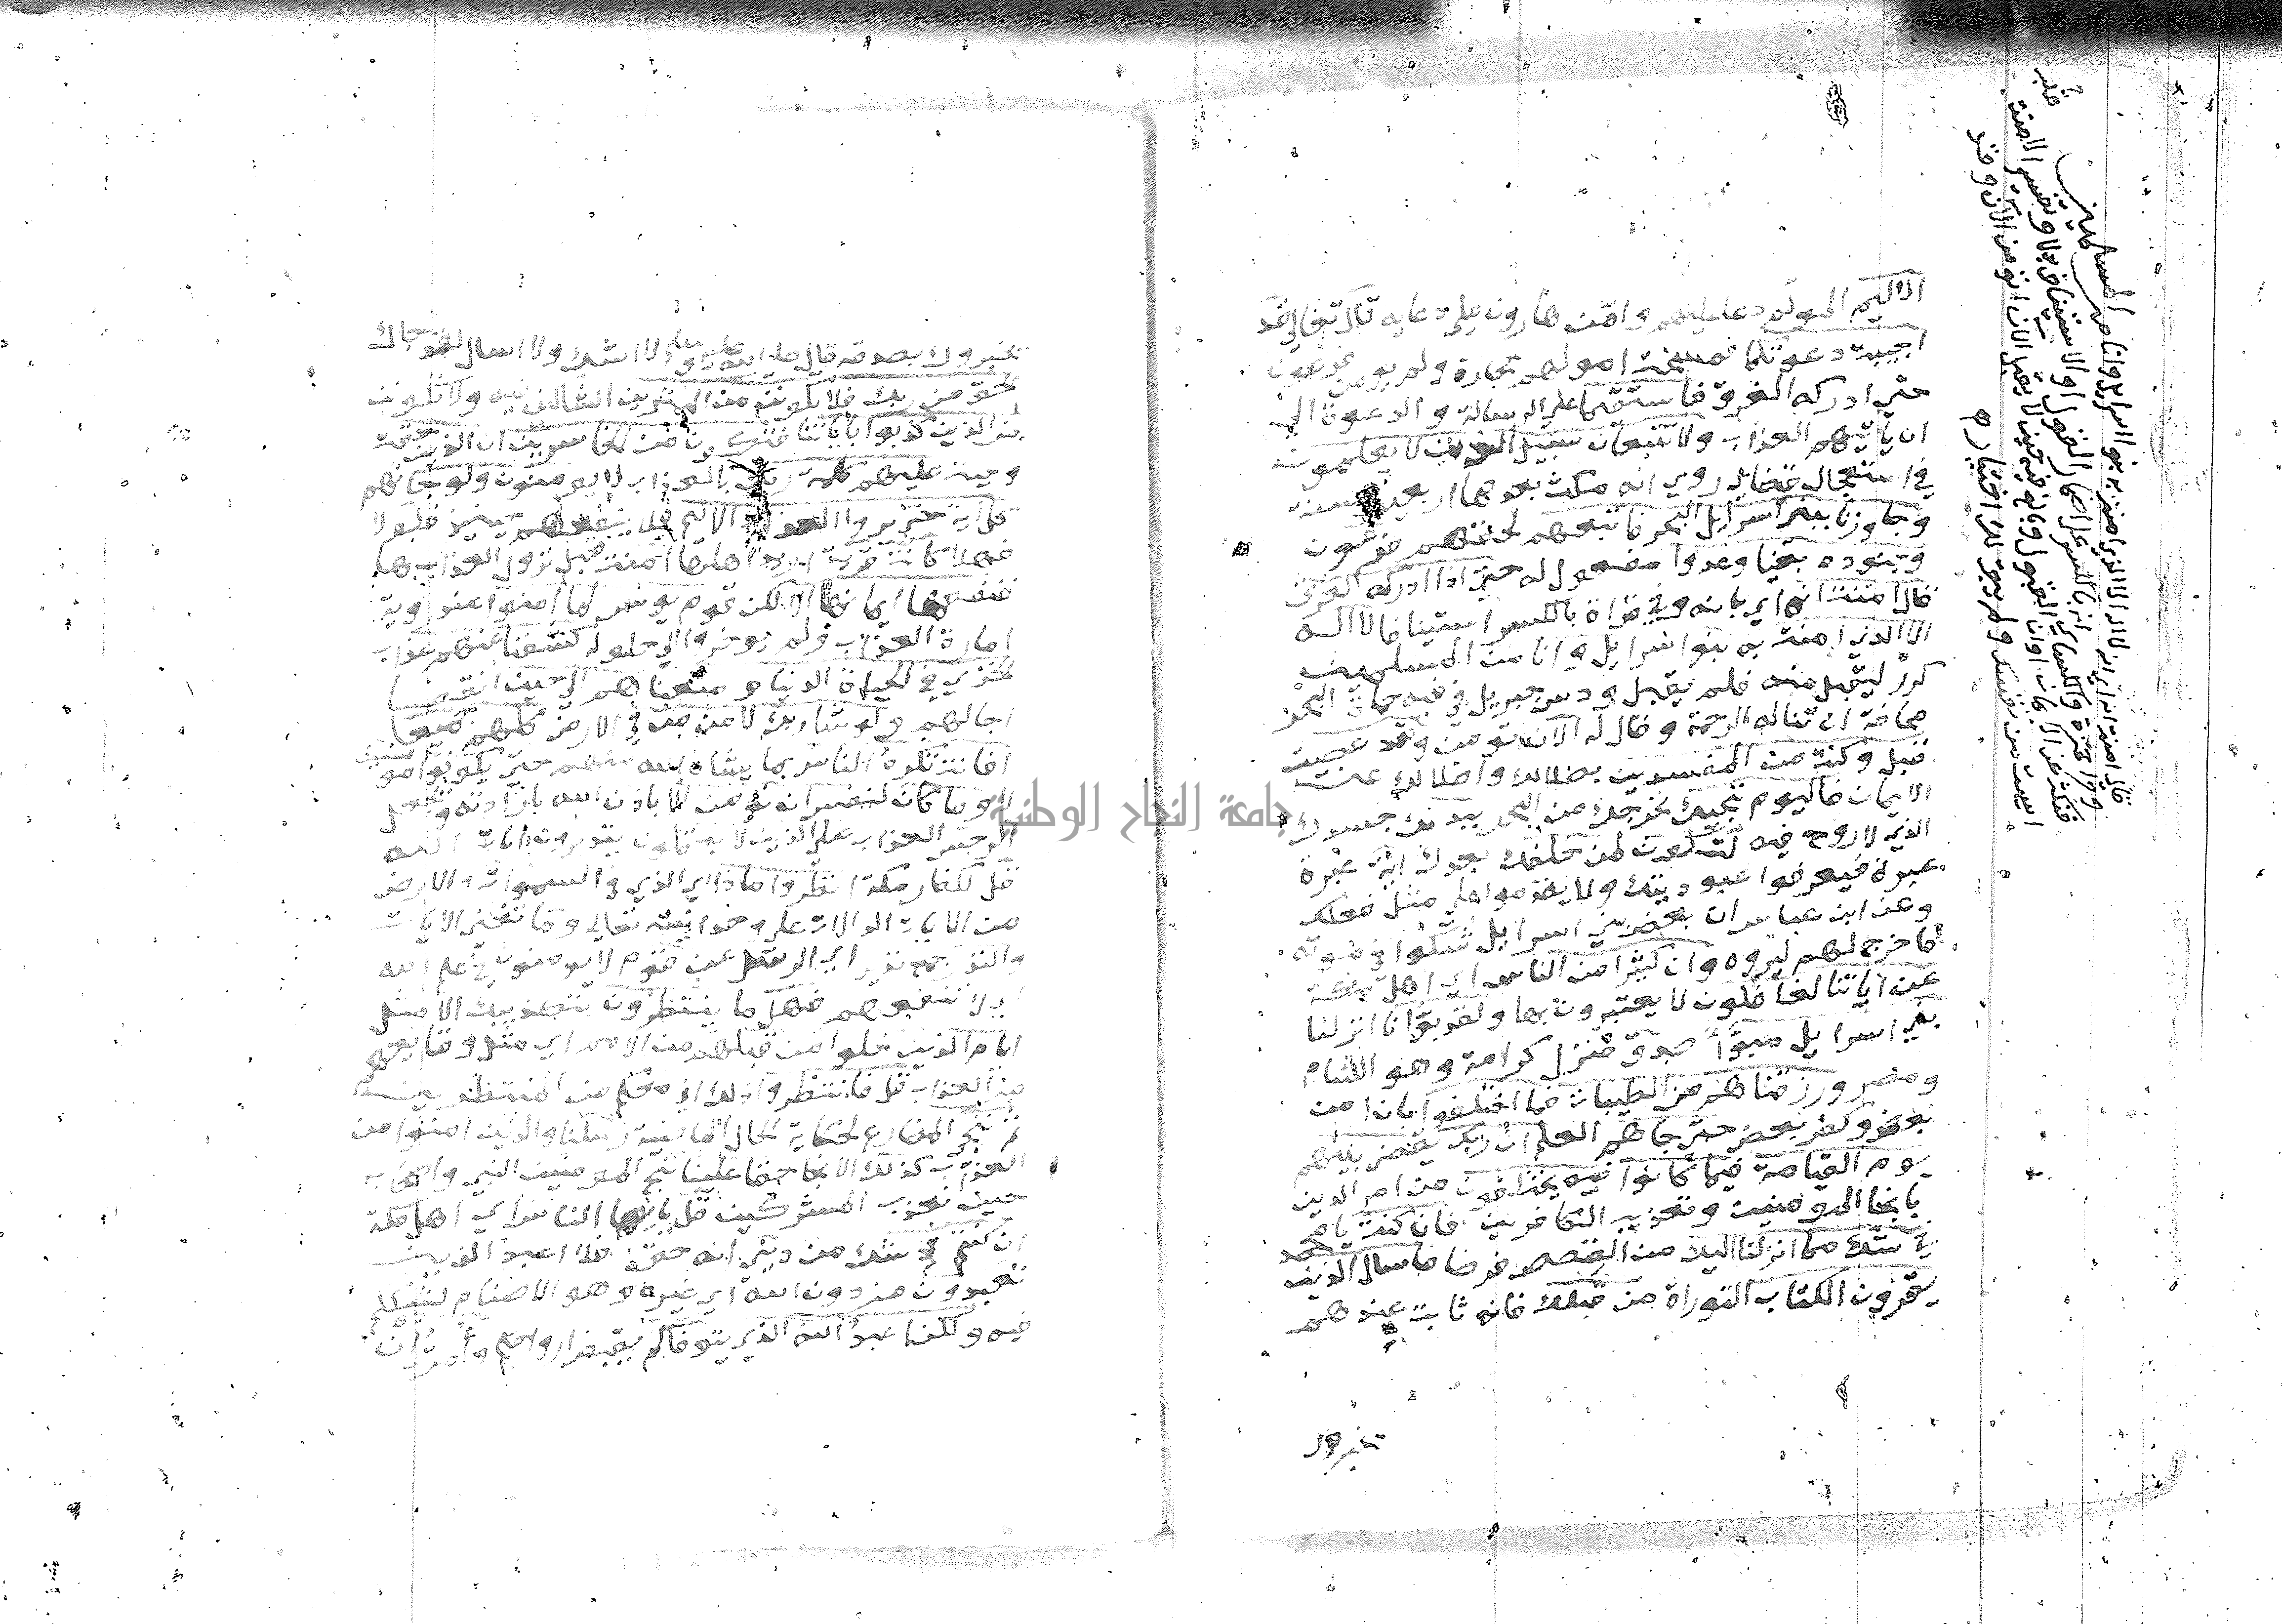 الاليم المولم دعا عليهم وامن هارون على دعايه قال تعالى قد
اجيبت دعوتكما فمسخت اموالهم حجارة ولم يومن فرعون
حتى ادركه الغرق فاستقيما على الرسالة والدعوة الى
ان ياتيهم العذاب ولا تتبعان سبيل الذين لا يعلمون
في استعجال قضاي روي انه مكث بعدهما اربعين سنة
وجاوزنا ببني اسرايل البحر فاتبعهم لحقهم فرعون
وجنوده بغيا وعدوا مفعول له حتى اذا ادركه الغرق
قال امنت انه اي بانه وفي قراة بالكسر استينافا لا اله
الا الذي امنت به بنوا اسرايل وانا من المسلمين
كرر ليقبل منه فلم يقبل ودس جبريل في فيه حماة البحر
مخافة ان تناله الرحمة وقال له الان تومن وقد عصيت
قبل وكنت من المفسدين بضلالك واضلالك عن
الايمان فاليوم ننجيك نخرجك من البحر ببدنك جسدك
الذي لا روح فيه لتكون لمن خلفك بعدك اية عبرة
عبرة فيعرفوا عبوديتك ولا يقدموا على مثل فعلك
وعن ابن عباس ان بعض بني اسرايل شكوا في موته
فاخرج لهم ليروه وان كثيرا من الناس اي اهل مكة
عن اياتنا لغافلون لا يعتبرون بها ولقد بوانا انزلنا
بني اسرايل مبوّأ صدق منزل كرامة وهو الشام
ومصر ورزقناهم من الطيبات فما اختلفوا بان امن
بعض وكفر بعض حتى جاهم العلم ان ربك يقضي بينهم
يوم القيامة فيما كانوا فيه يختلفون من امر الدين
بانجا المومنين وتعذيب الكافرين فان كنت يا محمد
في شك مما انزلنا اليك من القصص فرضا فاسال الذين
يقرون الكتاب التوراة من قبلك فانه ثابت عندهم
يخبروك
قال امنت انه اي بانه لا اله الا الذي امنت به بنوا اسرايل وانا من المسلمين
يخبروك بصدقه قال صلى الله عليه وسلم لا اشك ولا اسال لقد جاك
الحق من ربك فلا تكونن من الممترين الشاكين فيه ولا تكونن
من الذين كذبوا بايات الله فتكون من الخاسرين ان الذين حقت
وجبت عليهم كلمة ربك بالعذاب لا يومنون ولو جاتهم
كل اية حتى يروا العذاب الاليم فلا ينفعهم حينيذ فلولا
فهلا كانت قرية اريد اهلها امنت قبل نزول العذاب بها
فنفعها ايمانها الا لكن قوم يونس لما امنوا عند روية
امارة العذاب ولم يوخروا الى حلوله كشفنا عنهم عذاب
الخزي في الحياة الدنيا ومتعناهم الى حين انقضا
اجالهم ولو شا ربك لامن من في الارض كلهم جميعا
افانت تكره الناس بما لم يشاه الله منهم حتى يكونوا مومنين
لا وما كان لنفس ان تومن الا باذن الله بارادته ويجعل
الرجس العذاب على الذين لا يعقلون يتدبرون ايات الله
قل لكفار مكة انظروا ماذا اي الذي في السموات والارض
من الايات الدالات على وحدانيته تعالى وما تغني الايات
والنذر جمع نذير اي الرسل عن قوم لا يومنون في علم الله
اي لا تنفعهم فهل ما ينتظرون بتكذيبك الا مثل
ايام الذين خلوا من قبلهم من الامم اي مثل وقايعهم
من العذاب قل فانتظروا ذلك اني معكم من المنتظرين
ثم ننجي المضارع لحكاية الحال الماضية رسلنا والذين امنوا من
العذاب كذلك الانجا حقا علينا ننج المومنين النبي واصحابه
حين تعذيب المشركين قل يا ايها الناس اي اهل مكة
ان كنتم في شك من ديني انه حق فلا اعبد الذين
تعبدون من دون الله اي غيره وهو الاصنام لشككم
فيه ولكن اعبد الله الذي يتوفاكم بقبض ارواحكم وامرت ان
جامعة النجاح الوطنية